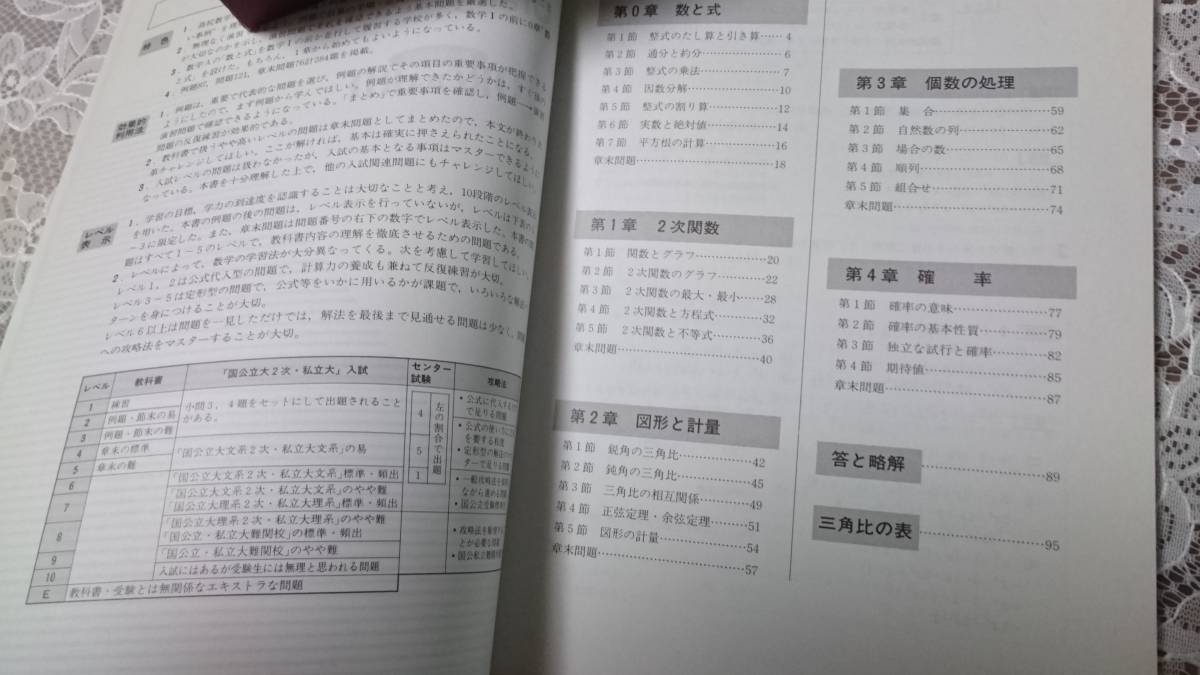 特色
効果的
利用法
3. 数学Aの「数と式」を数学Iの前に
と式」を設けた。もちろん，1章から始めてもよいようになっている。
1. 例題は，重要で代表的な問題を選び，例題の解説でその項目の重要事項が把握できる
演習問題で確認できるようになっている。「まとめ」で重要事項を確認し，例題→演習
問題の反復練習が効果的である。
2. 教科書で扱うやや高いレベルの問題は章末問題としてまとめたので，本文が終わりた
第チャレンジしてほしい。ここが解ければ，基本は確実に押さえられたことになる。
3. 入試レベルの問題は扱わなかったが，入試の基本となる事項はマスターできるように
なっている。本書を十分理解した上で，他の入試関連問題にもチャレンジしてほしい。
レベル
表示
1. 学習の目標，学力の到達度を認識することは大切なことと考え，10段階のレベル表示
を用いた。本書の例題の後の問題は，レベル表示を行っていないが，レベルは下表の
～3に限定した。また，章末問題は問題番号の右下の数字でレベル表示した。本書の
題はすべて1～5のレベルで，教科書内容の理解を徹底させるための問題である。
2. レベルによって，数学の学習法が大分異なってくる。次を考慮して学習してほしい。
レベル1，2は公式代入型の問題で，計算力の養成も兼ねて反復練習が大切。
レベル3～5は定形型の問題で，公式等をいかに用いるかが課題で，いろいろな解法
ターンを身につけることが大切。
レベル6以上は問題を一見しただけでは，解法を最後まで見通せる問題は少なく，問題
への攻略法をマスターすることが大切。
レベル 教科書 「国公立大2次・私立大」入試 センター試験 攻略法
1 練習
2 例題・節末の易
3 例題・節末の難
4 章末の標準
5 章末の難
6
7
8
9
10
E
小問3，4題をセットにして出題されること
がある。
「国公立大文系2次・私立大文系」の易
「国公立大文系2次・私立大文系」標準・頻出
「国公立大文系2次・私立大文系」のやや難
「国公立大理系2次・私立大理系」標準・頻出
「国公立大理系2次・私立大理系」のやや難
「国公立・私立大難関校」の標準・頻出
「国公立・私立大難関校」のやや難
入試にはあるが受験生には無理と思われる問題
教科書・受験とは無関係なエキストラな問題
4
5
1
左の割合で出題
・公式に代入する
で足りる問題
・公式の使い
を要する程度
・定形型の解法の
ターで足りる問
・一般攻略法を
ながら進める問
・国公立受験標準
・攻略法を
とが必要な問
・国公私立難関
第0章 数と式
第1節 整式のたし算と引き算……4
第2節 通分と約分……6
第3節 整式の乗法……7
第4節 因数分解……10
第5節 整式の割り算……12
第6節 実数と絶対値……14
第7節 平方根の計算……16
章末問題……18
第1章 2次関数
第1節 関数とグラフ……20
第2節 2次関数のグラフ……22
第3節 2次関数の最大・最小……28
第4節 2次関数と方程式……32
第5節 2次関数と不等式……36
章末問題……40
第2章 図形と計量
第1節 鋭角の三角比……42
第2節 鈍角の三角比……45
第3節 三角比の相互関係……49
第4節 正弦定理・余弦定理……51
第5節 図形の計量……54
章末問題……57
第3章 個数の処理
第1節 集合……59
第2節 自然数の列……62
第3節 場合の数……65
第4節 順列……68
第5節 組合せ……71
章末問題……74
第4章 確率
第1節 確率の意味……77
第2節 確率の基本性質……79
第3節 独立な試行と確率……82
第4節 期待値……85
章末問題……87
答と略解……89
三角比の表……95